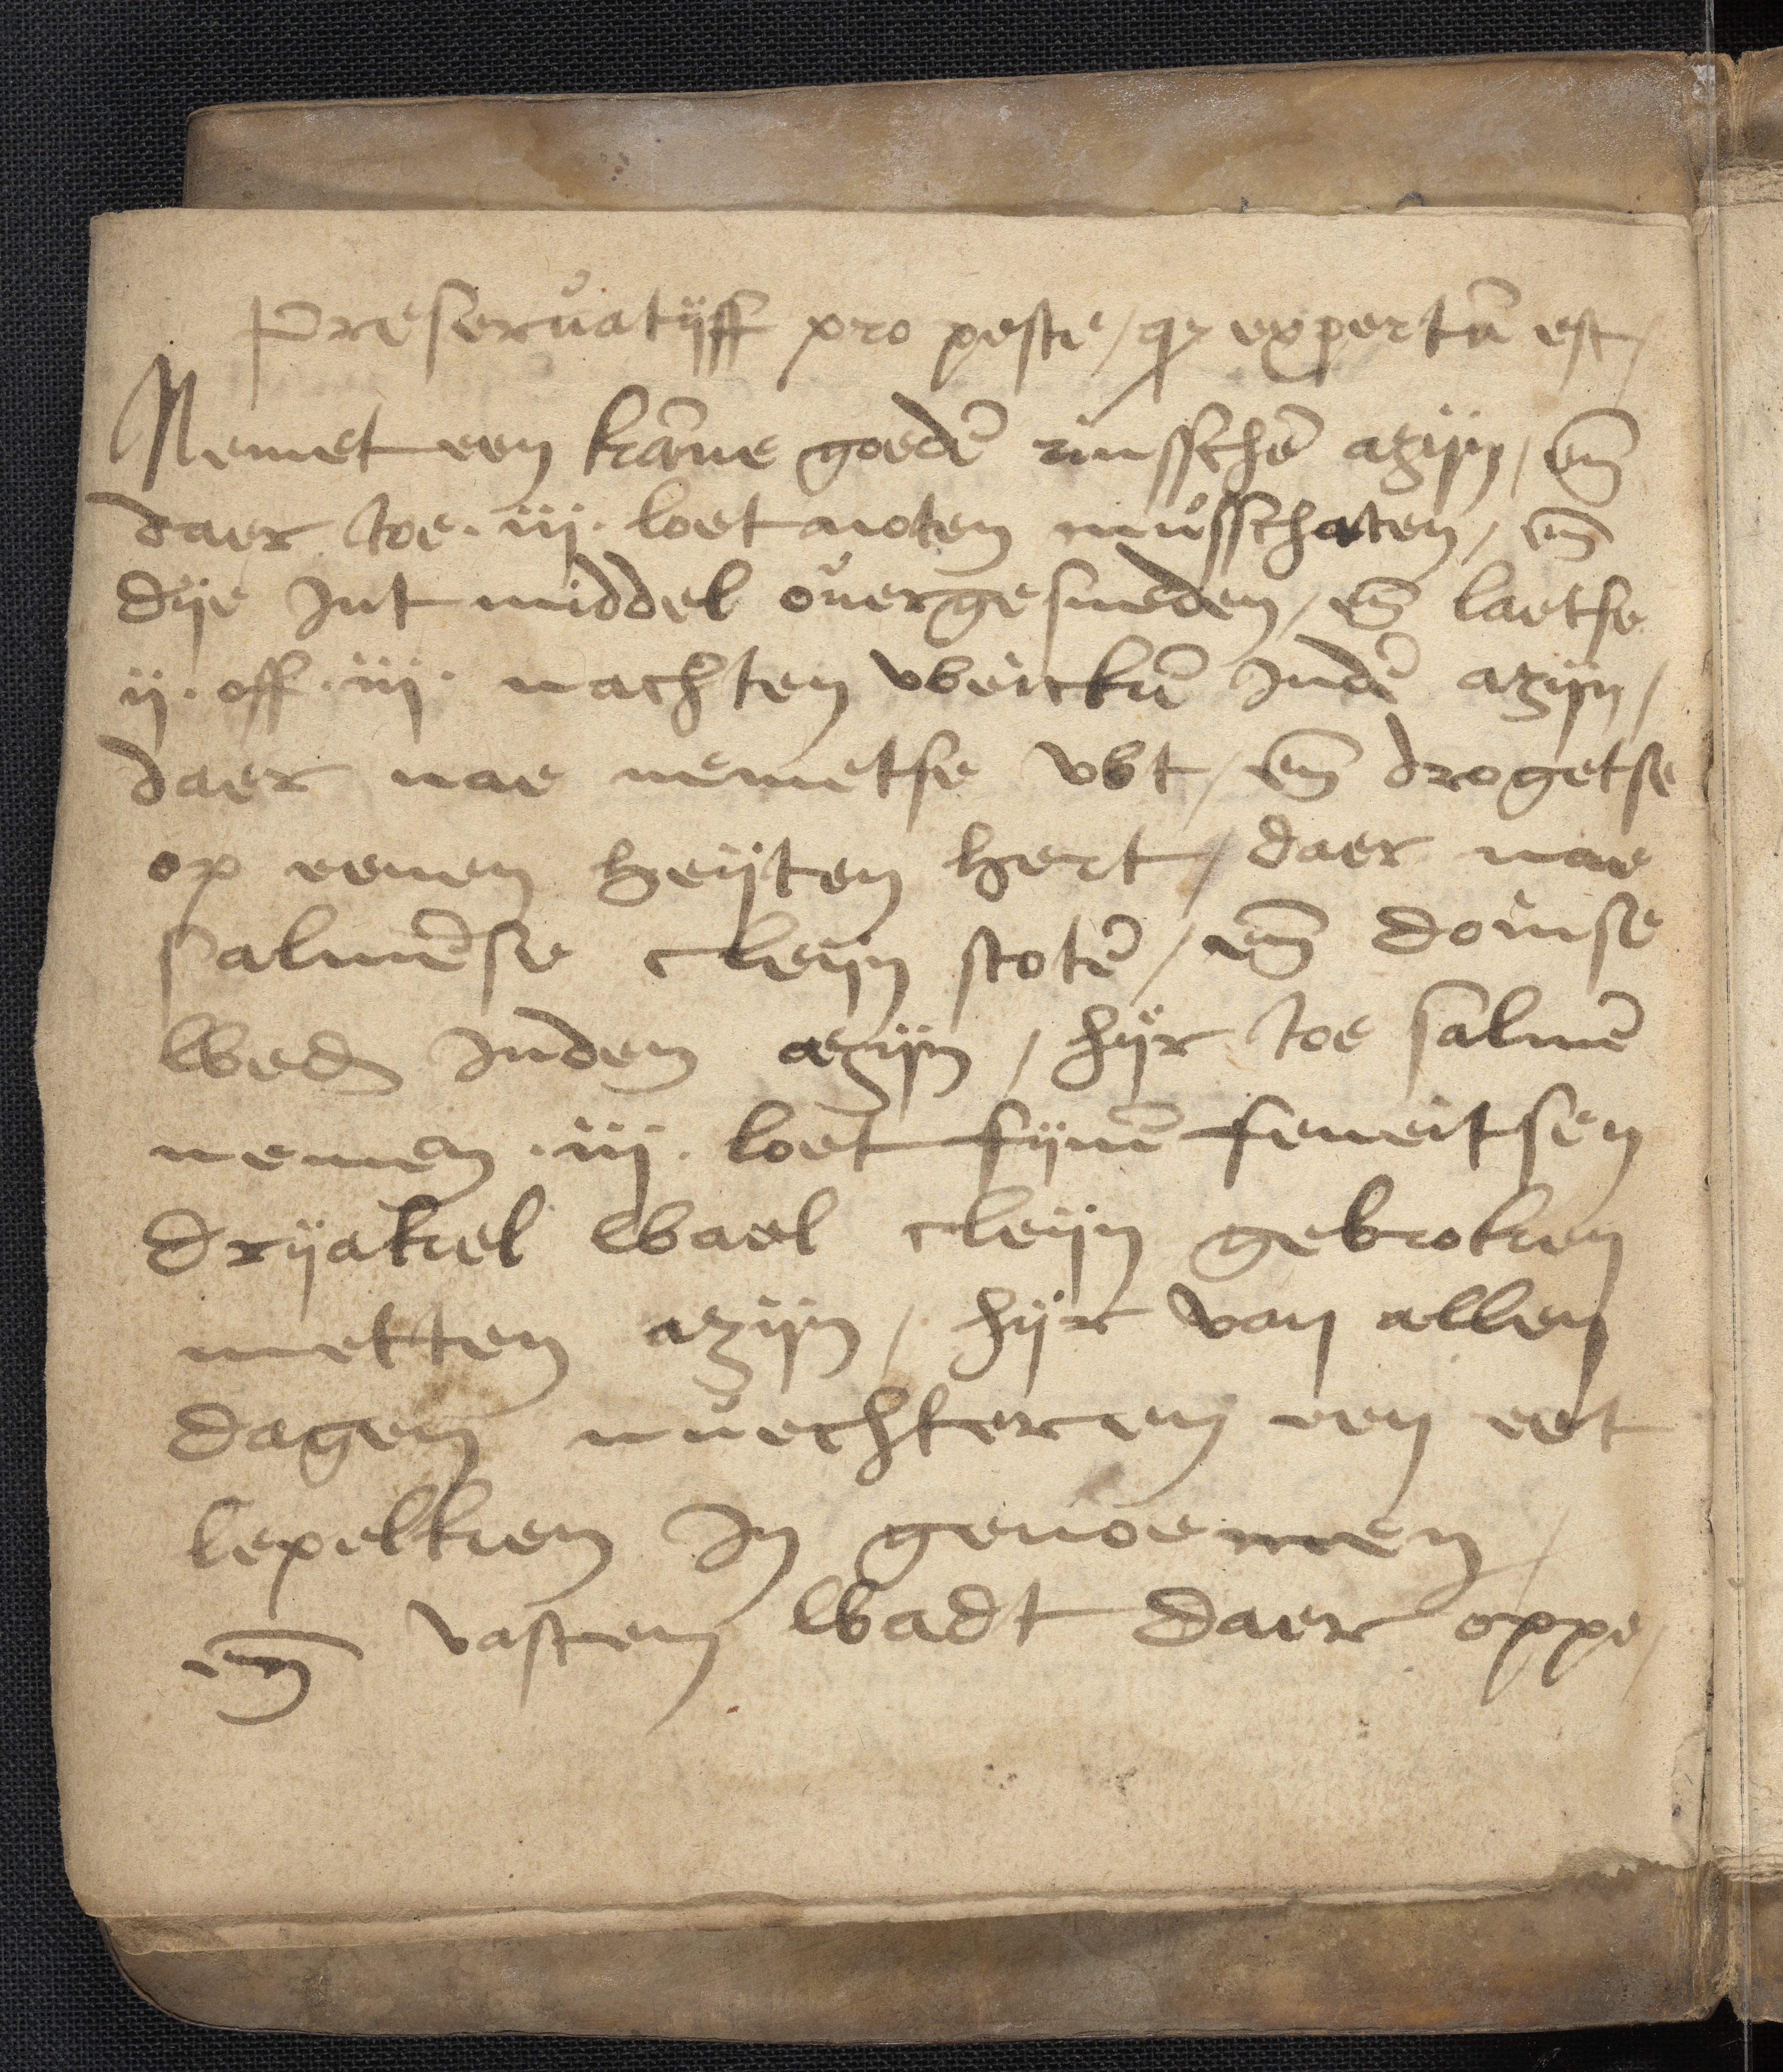 Preseruatijff pro peste / qz expertū est /
Nemet een kāne goedē rinsschē azijn / en̄
daer toe · iij · loet noten musschaten / en̄
dije Int middel ouergesneden / en̄ laetse
ij · off · iij · nachten weickē Indē azijn /
daer nae nemetse vvt / en̄ drogetse
op eenen heijten hert / daer nae
salmēse cleijn stotē / en̄ doinse
wed̄ Inden azijn / hijr toe salmē
nemen · iij · loet fijnē feneitsen
drijakel wael cleijn gebroken
metten azijn / hijr van allen
dagen nuechteren een eet
lepelken In genoemen /
en̄ vasten wadt daer oppe /